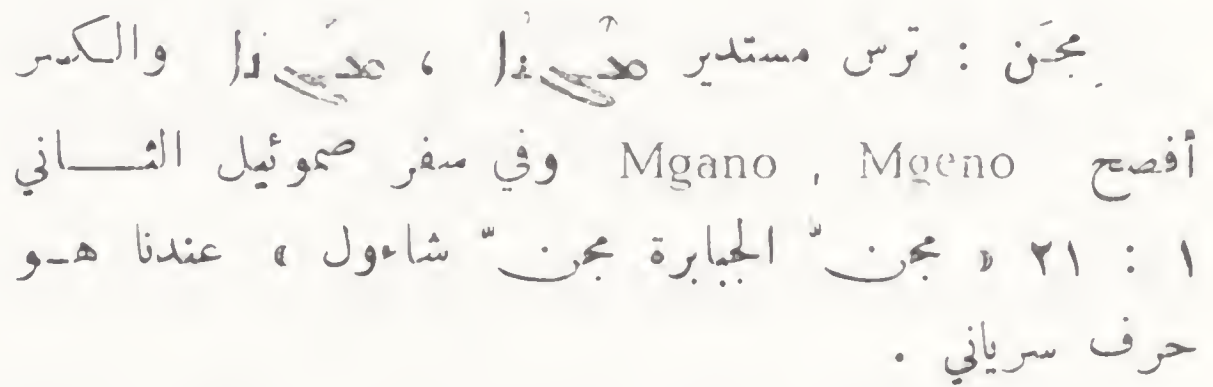 مِجَن : ترس مستدير ܡܓܢܐ ، ܡܓܢܐ والكسر
أفصح Mgano , Mgeno وفي سفر صموئيل الثــاني
١ : ٢١ « مجنّ الجبابرة مجنّ شاءول » عندنا هـو
حرف سرياني .